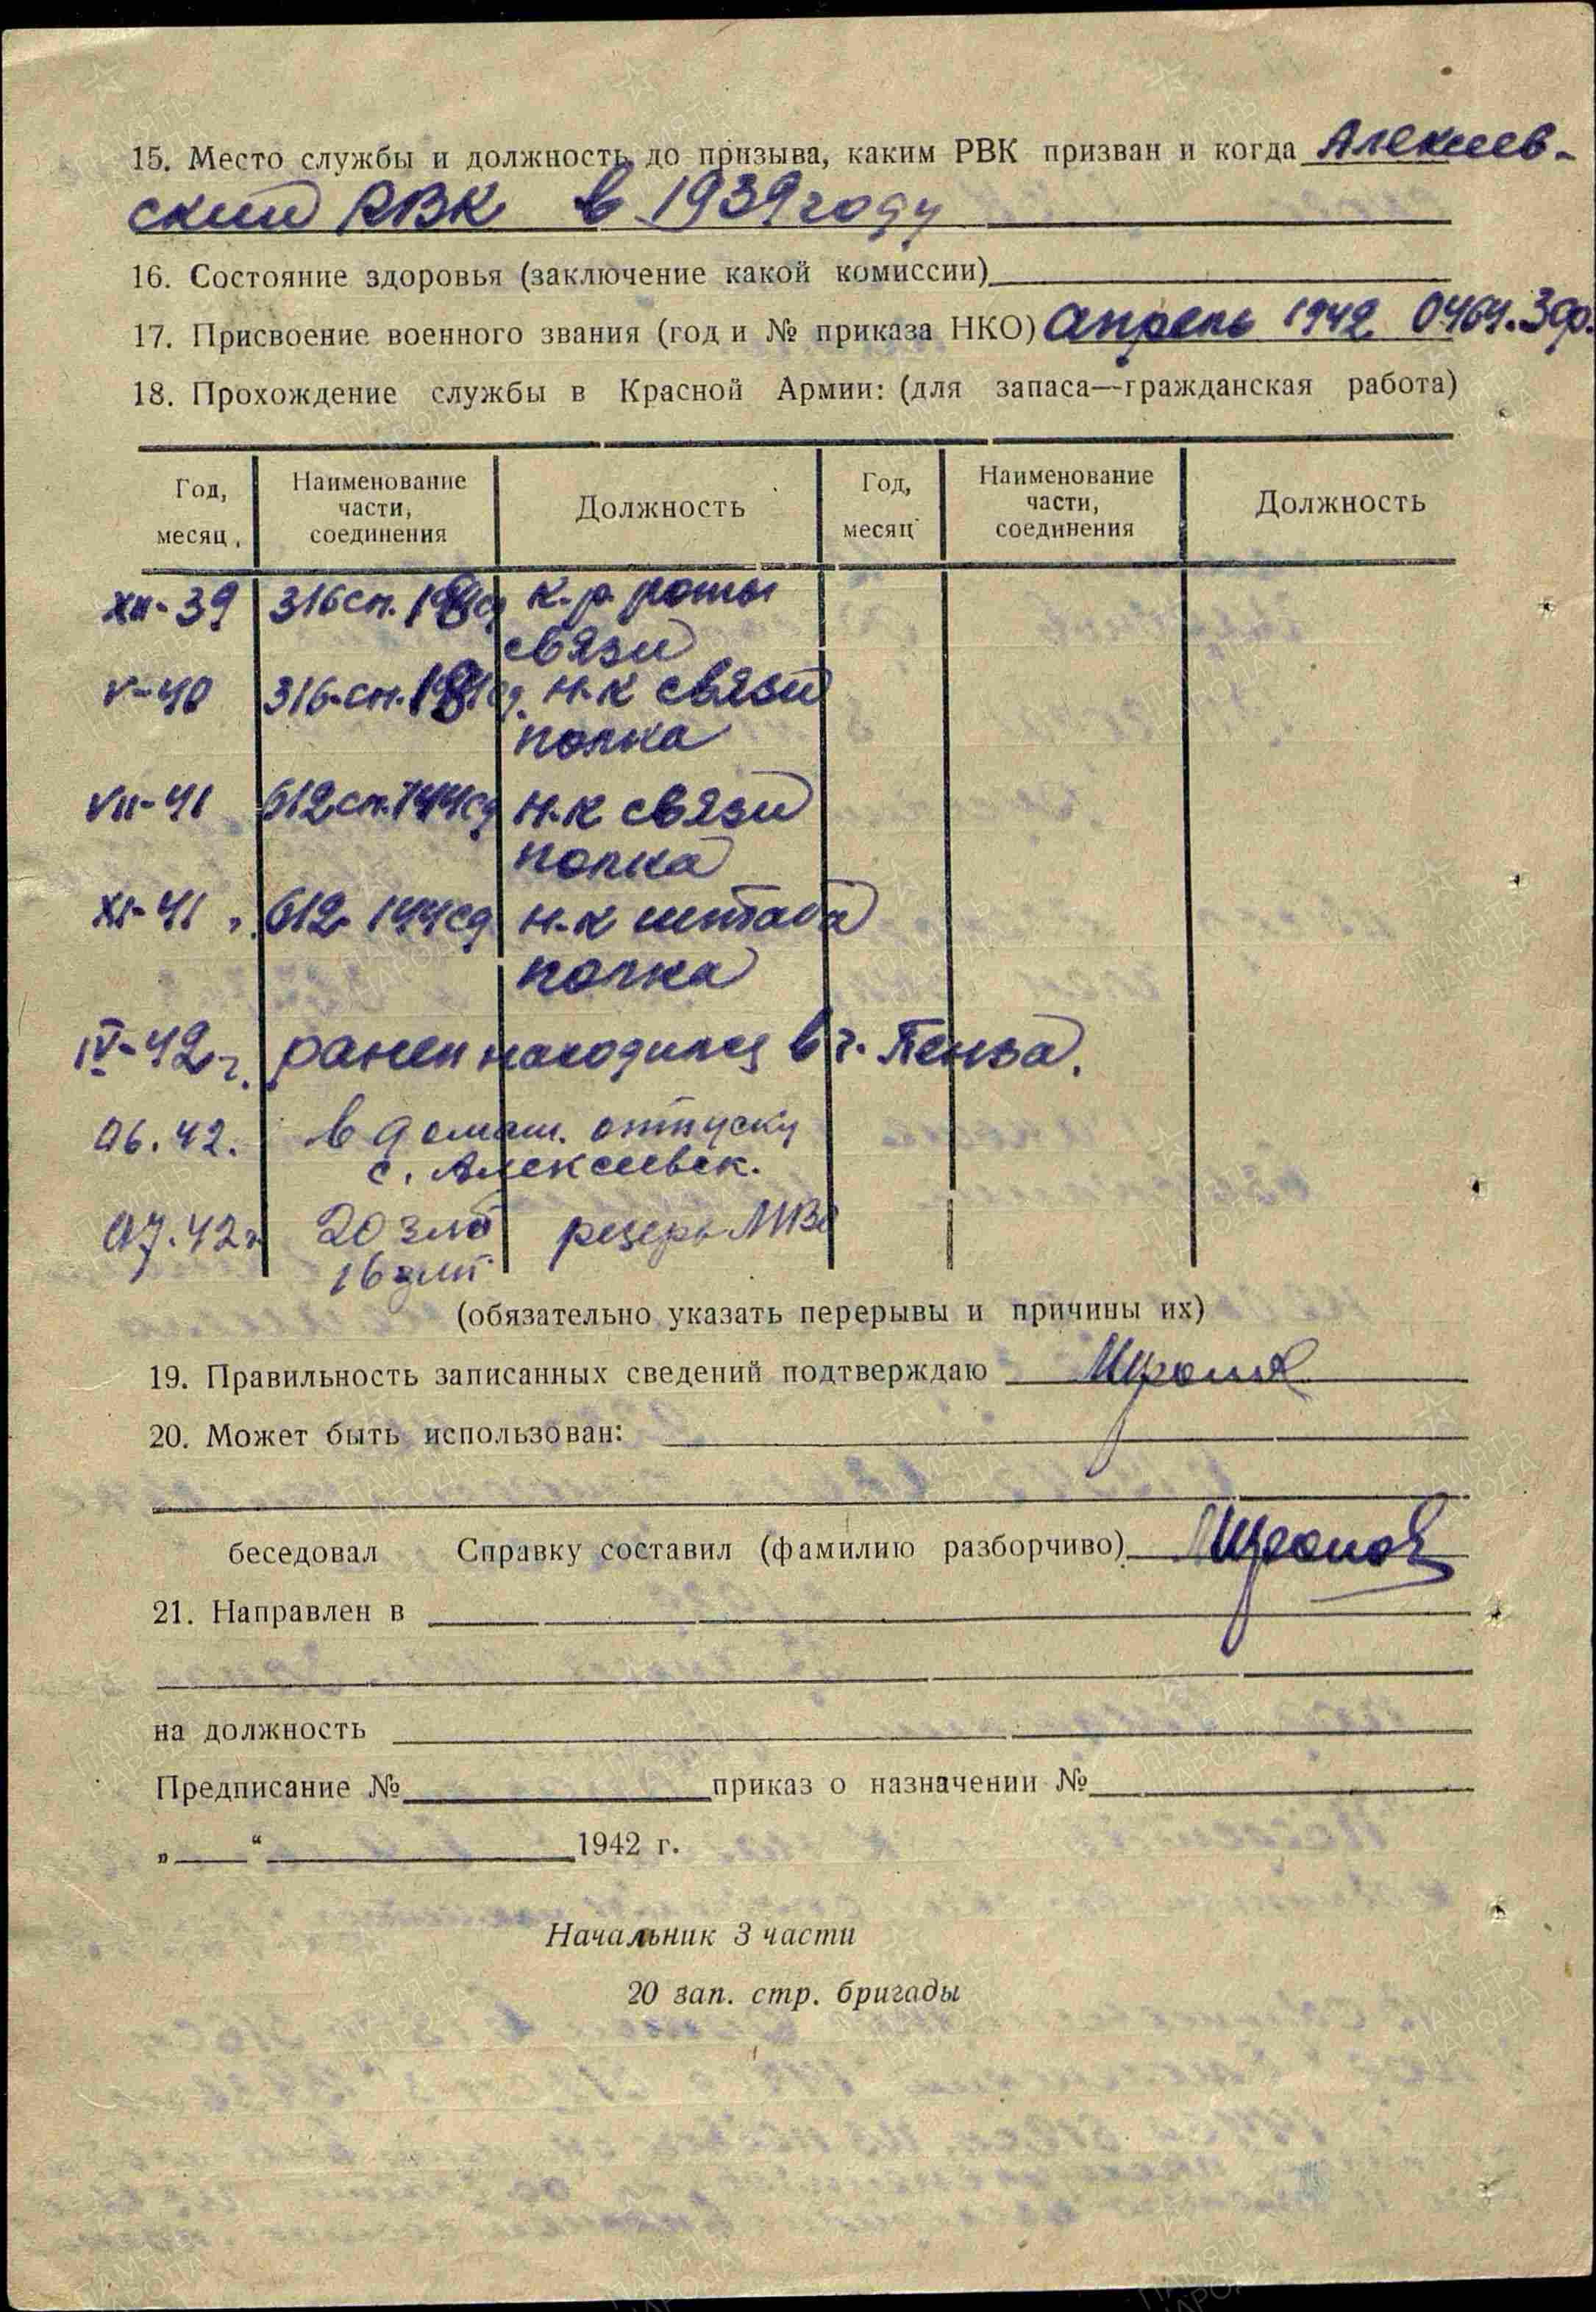 15. Место службы и должность до призыва, каким РВК призван и когда Алексеев-
ский РВК в 1939 году
16. Состояние здоровья (заключение какой комиссии)
17. Присвоение военного звания (год и № приказа НКО) апрель 1942 0464. Зф.
18. Прохождение службы в Красной Армии: (для запаса—гражданская работа)
Год, месяц Наименование части, соединения Должность Год, месяц Наименование части, соединения Должность
XII-39 316 сп. к.р. роты
связи
V-40 316 сп. н-к связи
полка
VII-41 612 сп. 144 сд н-к связи
полка
XI-41 612 144 сд н-к штаба
полка
IV-42 г. ранен находился в г. Пенза.
06.42. в домаш. отпуску
с. Алексеевск.
07.42 г. 20 МВО
16
(обязательно указать перерывы и причины их)
19. Правильность записанных сведений подтверждаю
20. Может быть использован:
беседовал Справку составил (фамилию разборчиво)
21. Направлен в
на должность
Предписание № приказ о назначении №
„ “ 1942 г.
Начальник 3 части
20 зап. стр. бригады